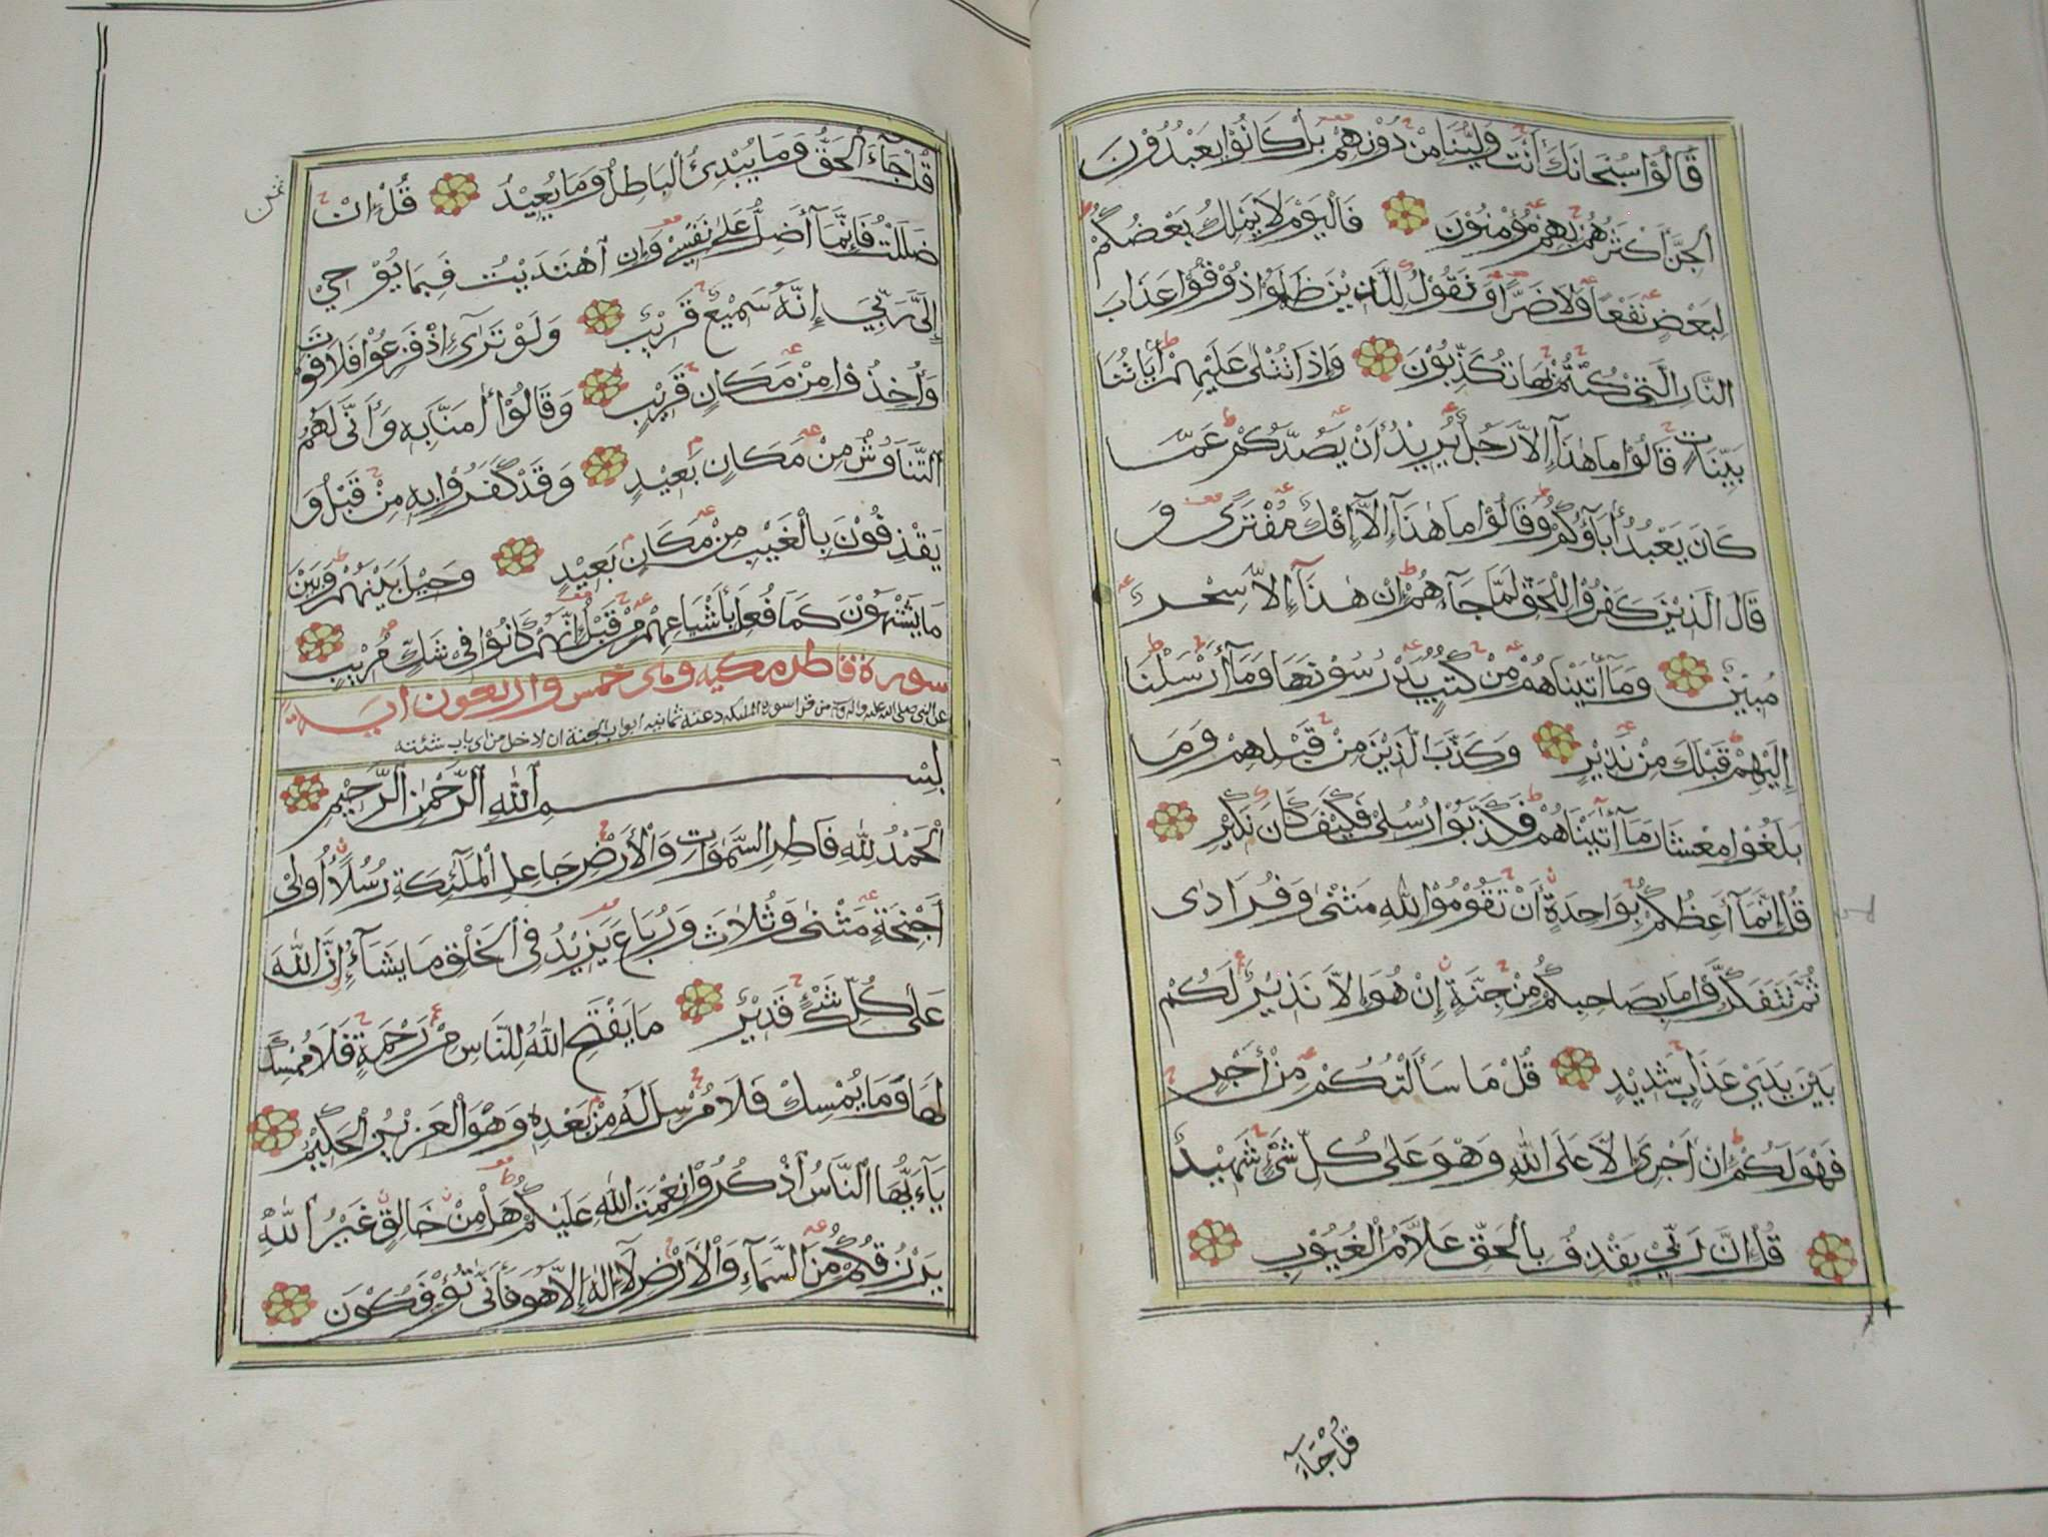 قَالُوْا سُبْحَانَكَ أَنْتَ وَلِيُّنَا مِنْ دُوْنِهِمْ بَلْ كَانُوْا يَعْبُدُوْنَ
اَلْجِنَّ أَكْثَرُهُمْ بِهِمْ مُؤْمِنُوْنَ فَالْيَوْمَ لَا يَمْلِكُ بَعْضُكُمْ
لِبَعْضٍ نَفْعًا وَلَا ضَرًّا وَنَقُوْلُ لِلَّذِيْنَ ظَلَمُوْا ذُوْقُوْا عَذَابَ
النَّارِ الَّتِيْ كُنْتُمْ بِهَا تُكَذِّبُوْنَ وَإِذَا تُتْلٰى عَلَيْهِمْ أٰيَاتُنَا
بَيِّنَاتٍ قَالُوْا مَا هٰذَآ إِلَّا رَجُلٌ يُرِيْدُ أَنْ يَصُدَّكُمْ عَمَّا
كَانَ يَعْبُدُ أٰبَآؤُكُمْ وَقَالُوْا مَا هٰذَآ إِلَّآ إِفْكٌ مُفْتَرًى وَ
قَالَ الَّذِيْنَ كَفَرُوْا لِلْحَقِّ لَمَّا جَآءَهُمْ إِنْ هٰذَآ إِلَّا سِحْرٌ
مُبِيْنٌ وَمَآ أٰتَيْنَاهُمْ مِنْ كُتُبٍ يَدْرُسُوْنَهَا وَمَآ أَرْسَلْنَا
إِلَيْهِمْ قَبْلَكَ مِنْ نَذِيْرٍ وَكَذَّبَ الَّذِيْنَ مِنْ قَبْلِهِمْ وَمَا
بَلَغُوْا مِعْشَارَ مَآ أٰتَيْنَاهُمْ فَكَذَّبُوْا رُسُلِيْ فَكَيْفَ كَانَ نَكِيْرِ
قُلْ إِنَّمَآ أَعِظُكُمْ بِوَاحِدَةٍ أَنْ تَقُوْمُوْا لِلّٰهِ مَثْنٰى وَفُرَادٰى
ثُمَّ تَتَفَكَّرُوْا مَا بِصَاحِبِكُمْ مِنْ جِنَّةٍ إِنْ هُوَ إِلَّا نَذِيْرٌ لَكُمْ
بَيْنَ يَدَيْ عَذَابٍ شَدِيْدٍ قُلْ مَا سَأَلْتُكُمْ مِنْ أَجْرٍ
فَهْوَ لَكُمْ إِنْ أَجْرِيَ إِلَّا عَلَى اللّٰهِ وَهْوَ عَلٰى كُلِّ شَيْءٍ شَهِيْدٌ
قُلْ إِنَّ رَبِّيْ يَقْذِفُ بِالْحَقِّ عَلَّامُ الْغُيُوْبِ
قُلْ جَآءَ
قُلْ جَآءَ الْحَقُّ وَمَا يُبْدِئُ الْبَاطِلُ وَمَا يُعِيْدُ قُلْ إِنْ
ثمن
ضَلَلْتُ فَإِنَّمَآ أَضِلُّ عَلٰى نَفْسِيْ وَإِنِ اهْتَدَيْتُ فَبِمَا يُوْحِيْ
إِلَيَّ رَبِّيْ إِنَّهُ سَمِيْعٌ قَرِيْبٌ وَلَوْ تَرٰىٓ إِذْ فَزِعُوْا فَلَا فَوْتَ
وَأُخِذُوْا مِنْ مَكَانٍ قَرِيْبٍ وَقَالُوْٓا أٰمَنَّا بِهِ وَأَنّٰى لَهُمُ
التَّنَاوُشُ مِنْ مَكَانٍ بَعِيْدٍ وَقَدْ كَفَرُوْا بِهِ مِنْ قَبْلُ وَ
يَقْذِفُوْنَ بِالْغَيْبِ مِنْ مَكَانٍ بَعِيْدٍ وَحِيْلَ بَيْنَهُمْ وَبَيْنَ
مَا يَشْتَهُوْنَ كَمَا فُعِلَ بِأَشْيَاعِهِمْ مِنْ قَبْلُ إِنَّهُمْ كَانُوْا فِيْ شَكٍّ مُرِيْبٍ
سورة فاطر مكيه وهى خمس واربعون اية
عن النبي صلى الله عليه واله وسلم من قرا سورة الملئكة دعته ثمانيه ابواب الجنة ان ادخل من اى باب شئته
بِسْمِ اللّٰهِ الرَّحْمٰنِ الرَّحِيْمِ
اَلْحَمْدُ لِلّٰهِ فَاطِرِ السَّمٰوَاتِ وَالْأَرْضِ جَاعِلِ الْمَلَٓئِكَةِ رُسُلًا أُولِيْ
أَجْنِحَةٍ مَثْنٰى وَثُلَاثَ وَرُبَاعَ يَزِيْدُ فِي الْخَلْقِ مَا يَشَآءُ إِنَّ اللّٰهَ
عَلٰى كُلِّ شَيْءٍ قَدِيْرٌ مَا يَفْتَحِ اللّٰهُ لِلنَّاسِ مِنْ رَحْمَةٍ فَلَا مُمْسِكَ
لَهَا وَمَا يُمْسِكْ فَلَا مُرْسِلَ لَهُ مِنْ بَعْدِهِ وَهْوَ الْعَزِيْزُ الْحَكِيْمُ
يَآءَيُّهَا النَّاسُ اذْكُرُوْا نِعْمَتَ اللّٰهِ عَلَيْكُمْ هَلْ مِنْ خَالِقٍ غَيْرُ اللّٰهِ
يَرْزُقُكُمْ مِنَ السَّمَآءِ وَالْأَرْضِ لَآ إِلٰهَ إِلَّا هُوَ فَأَنّٰى تُؤْفَكُوْنَ